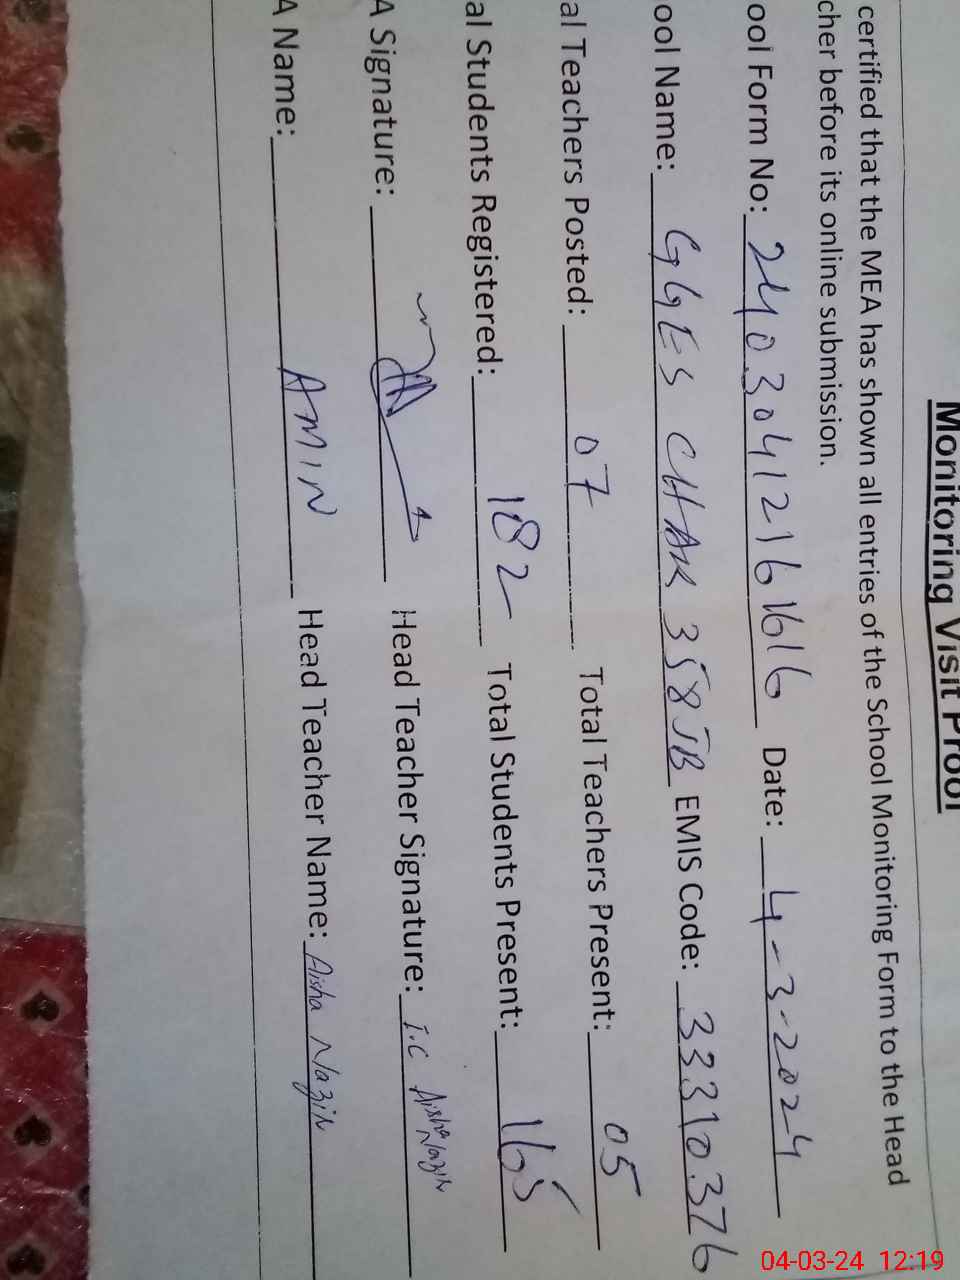 Monitoring Visit Proof
certified that the MEA has shown all entries of the School Monitoring Form to the Head
cher before its online submission.
ool Form No: 2403041216 1616 Date: 4-3-2024
ool Name: GGES CHAK 358 JB EMIS Code: 33310376
al Teachers Posted: 07 Total Teachers Present: 05
al Students Registered: 182 Total Students Present: 165
A Signature: Head Teacher Signature: I.C Aisha Nazir
A Name: AMIN Head Teacher Name: Aisha Nazir
04-03-24 12:19